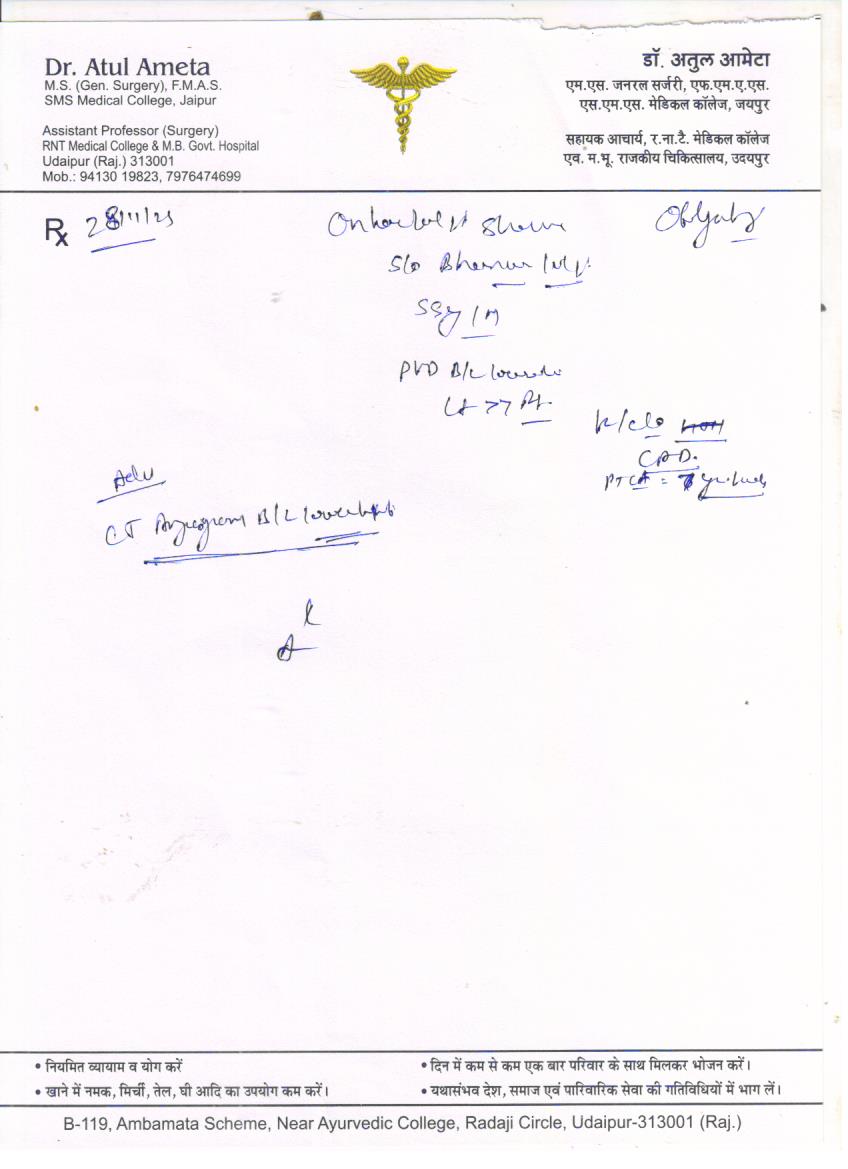 Dr. Atul Ameta
M.S. (Gen. Surgery), F.M.A.S.
SMS Medical College, Jaipur
Assistant Professor (Surgery)
RNT Medical College & M.B. Govt. Hospital
Udaipur (Raj.) 313001
Mob.: 94130 19823, 7976474699
डॉ. अतुल आमेटा
एम.एस. जनरल सर्जरी, एफ.एम.ए.एस.
एस.एम.एस. मेडिकल कॉलेज, जयपुर
सहायक आचार्य, र.ना.टै. मेडिकल कॉलेज
एव. म.भू. राजकीय चिकित्सालय, उदयपुर
Rx
S/o
/M
PVD B/L
Lt >> Rt.
K/c/o
CAD.
PTCA =
Adv
CT Angiogram B/L
• नियमित व्यायाम व योग करें
• खाने में नमक, मिर्ची, तेल, घी आदि का उपयोग कम करें।
• दिन में कम से कम एक बार परिवार के साथ मिलकर भोजन करें।
• यथासंभव देश, समाज एवं पारिवारिक सेवा की गतिविधियों में भाग लें।
B-119, Ambamata Scheme, Near Ayurvedic College, Radaji Circle, Udaipur-313001 (Raj.)